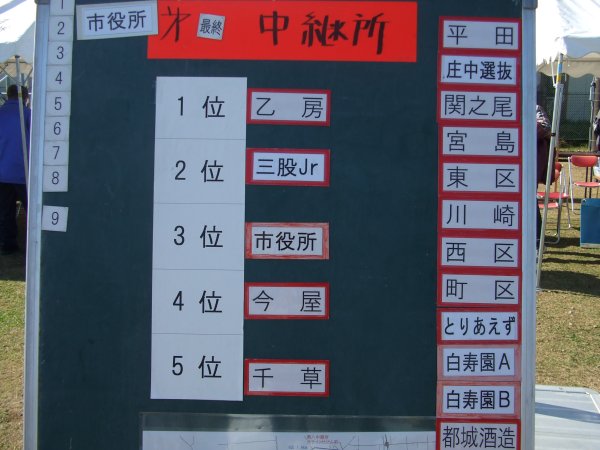 1
2
3
4
5
6
7
8
9
市役所
才 最終 中継所
1位 乙房
2位 三股Jr
3位 市役所
4位 今屋
5位 千草
平田
庄中選抜
関之尾
宮島
東区
川崎
西区
町区
とりあえず
白寿園A
白寿園B
都城酒造